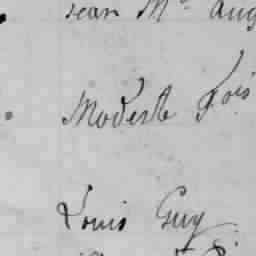 Jean M. Aug
Modeste Fois
Louis Guy